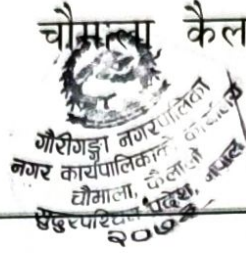 चौमाला कैल
गौरीगङ्गा नगरपालिका
नगर कार्यपालिकाको कार्यालय
चौमाला, कैलाली
सुदुरपश्चिम प्रदेश, नेपाल